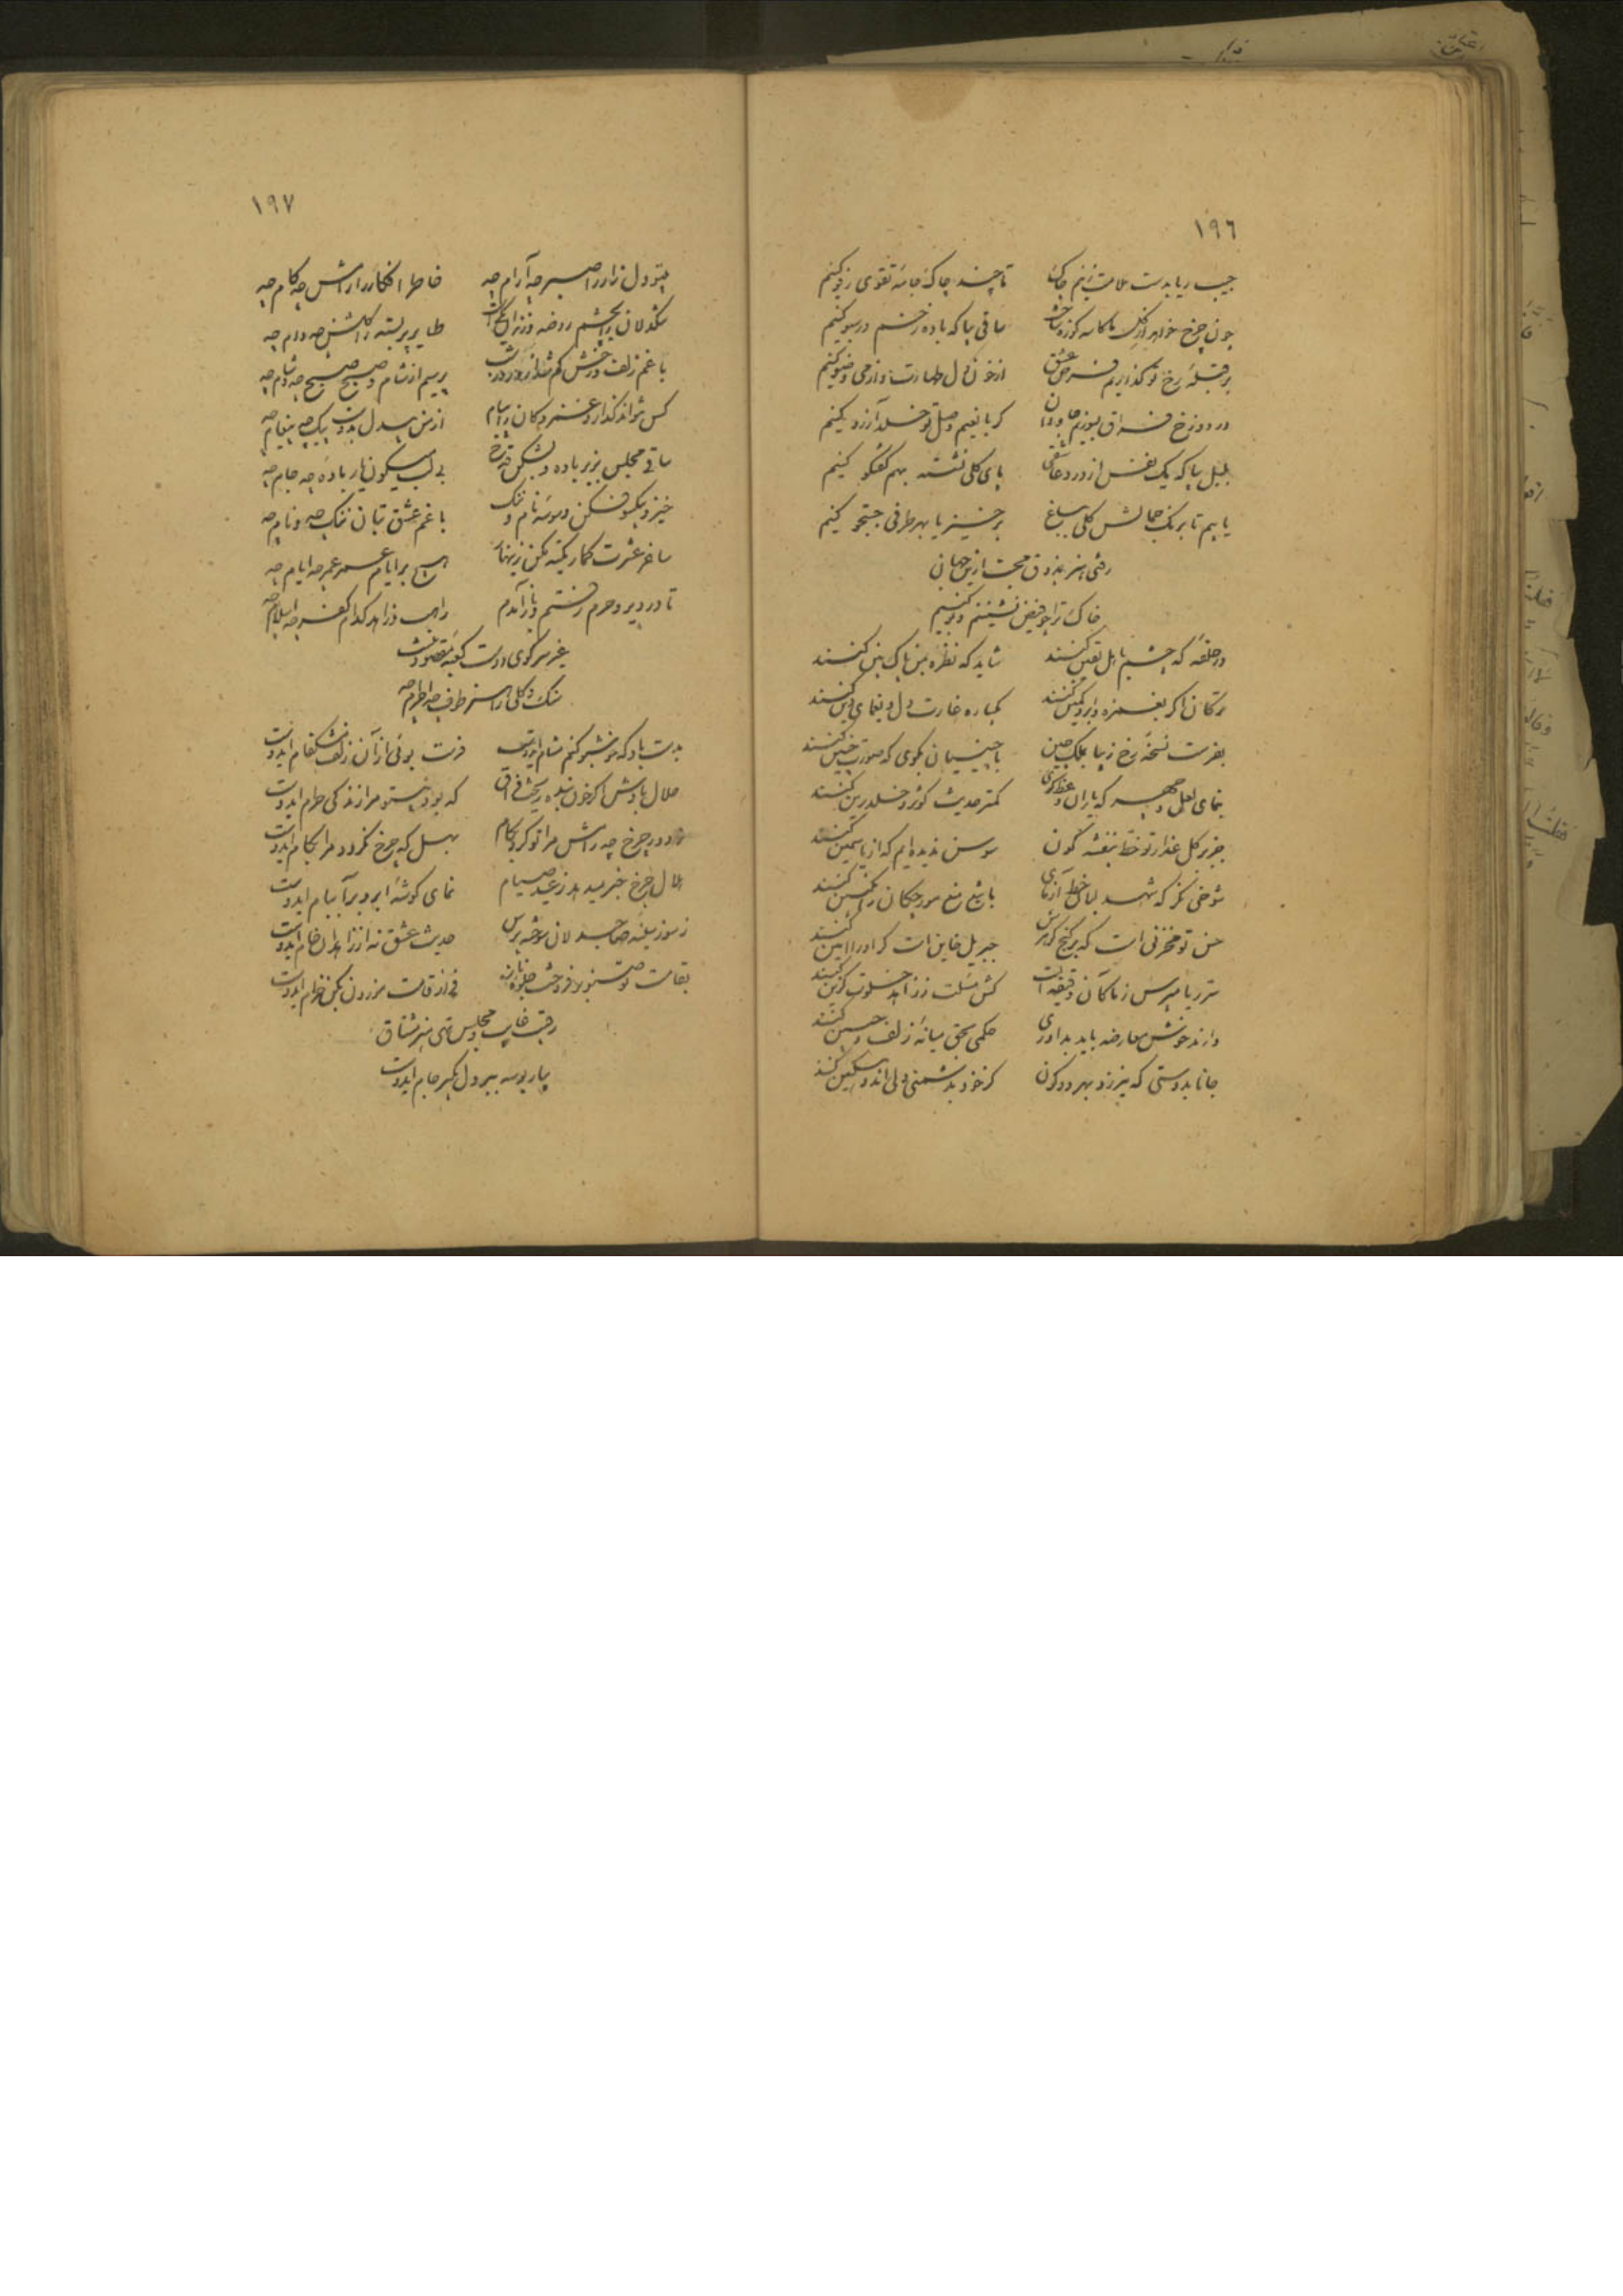 ١٩٦
جیب ریا بدست ملامت زنیم چاک تا چند چاک جامهٔ تقوی رفو کنیم
چون چرخ خواهد از کل ما کاسه کوزه ساخت ساقی بیا که باده ز خم در سبو کنیم
بر قبلهٔ رخ تو گذاریم فرض عشق از خون دل طهارت و از می وضو کنیم
در دوزخ فراق بسوزیم جاودان کر با نعیم وصل تو خلد آرزو کنیم
بلبل بیا که یک نفس از درد عاشقی پای کلی نشسته بهم کفتکو کنیم
یابیم تا برنک جمالش کلی بباغ برخیز تا بهر طرفی جستجو کنیم
رفتی هنر بذوق محبت ازین جهان
خاک ترا چو فیض نشینیم و بو کنیم
در حلقهٔ که چشم باهل یقین کنند شاید که نظره بین پاک بین کنند
ترکان اکر بغمزه و ابرو کمین کنند یکباره غارت دل و یغمای دین کنند
بفرست نسخهٔ رخ زیبا بملک چین با چینیان بکوی که صورت چنین کنند
بنمای لعلی و چهره که یاران وعظ کوی کمتر حدیث کوثر و خلد برین کنند
جز بر کل عذار تو خط بنفشه کون سوسن ندیده‌ایم که از یاسمین کنند
شوخی نکر که شهد لبان خط آزمای با تیغ منع مورچکان ز انکبین کنند
حسن تو مخزنی است که بر کنج کوهرش جبریل خاین است کر او را امین کنند
سر ریا مپرس ز ما کان دقیقه‌ایست کش مسئلت ز زاهد خلوت کزین کنند
دارند خوش معارضه باید بداوری حکمی بحق میانهٔ زلف و جبین کنند
جانا بدوستی که نیرزد بهر دو کون کر خود بدشمنی دلی اندوهکین کنند
١٩٧
بیتو دل زار را صبر چه آرام چه خاطر افکار را رامش چه کام چه
سنکدلان را بچشم روضه و زندان یکیست طایر پر بسته را کلشن چه و دام چه
با غم زلف و رخش کم شد از روز و شب پرسیم از شام و صبح صبح چه و شام چه
کس نتواند کذارد و عشرت کان پیام از من بیدل بدوست پیک چه پیغام چه
ساقی مجلس بریز باده و بشکن قدح بی لب میکون یار باده چه جام چه
خیز و بیکسو فکن وسوسهٔ نام و ننک با غم عشق بتان ننک چه و نام چه
ساغر عشرت کمار تکیه مکن زینهار هیچ بر ایام عمر عمر چه ایام چه
تا در دیر و حرم رفتم و باز آمدم راهب و زاهد کدام کفر چه اسلام چه
غیر سر کوی دوست کعبهٔ مقصود نیست
سنک و کلی را هنر طوف چه احرام چه
بدست باد که خوشبو کنم مشام ایدوست فرست بوئی از آن زلف مشکفام ایدوست
حلال بادش اکر خون بنده ریخت فراق که بود بیتو مرا زندکی حرام ایدوست
ز دور چرخ چه رامش مرا تو کرد بکام بهل که چرخ نکردد مرا بکام ایدوست
هلال چرخ خبر میدهد ز عید صیام نمای کوشهٔ ابرو برآ ببام ایدوست
ز سوز سینهٔ صاحبدلان سوخته پرس حدیث عشق نه از زاهدان خام ایدوست
بقامت تو صنوبر فروخت جلوهٔ ناز فی از قامت موزون بکن خرام ایدوست
رقیب غایب و مجلس تهی هنر مشتاق
بیار بوسه ببر دل بکیر جام ایدوست